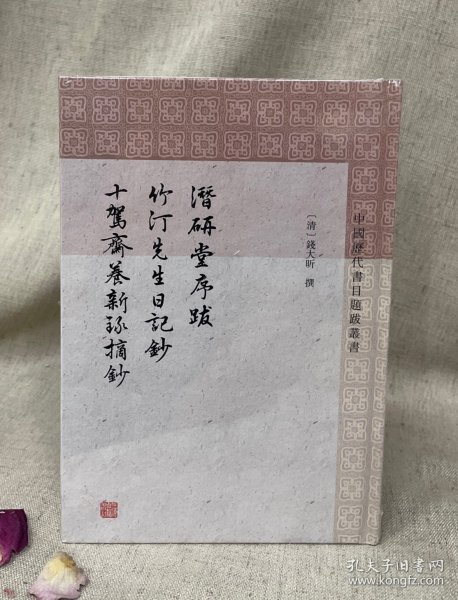 中國歷代書目題跋叢書
〔清〕錢大昕 撰
潛研堂序跋
竹汀先生日記鈔
十駕齋養新錄摘鈔
孔夫子旧书网
www.kongfz.com